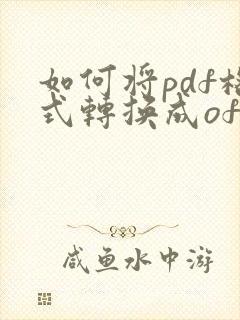 如何将pdf格
式转换成of
咸鱼水中游